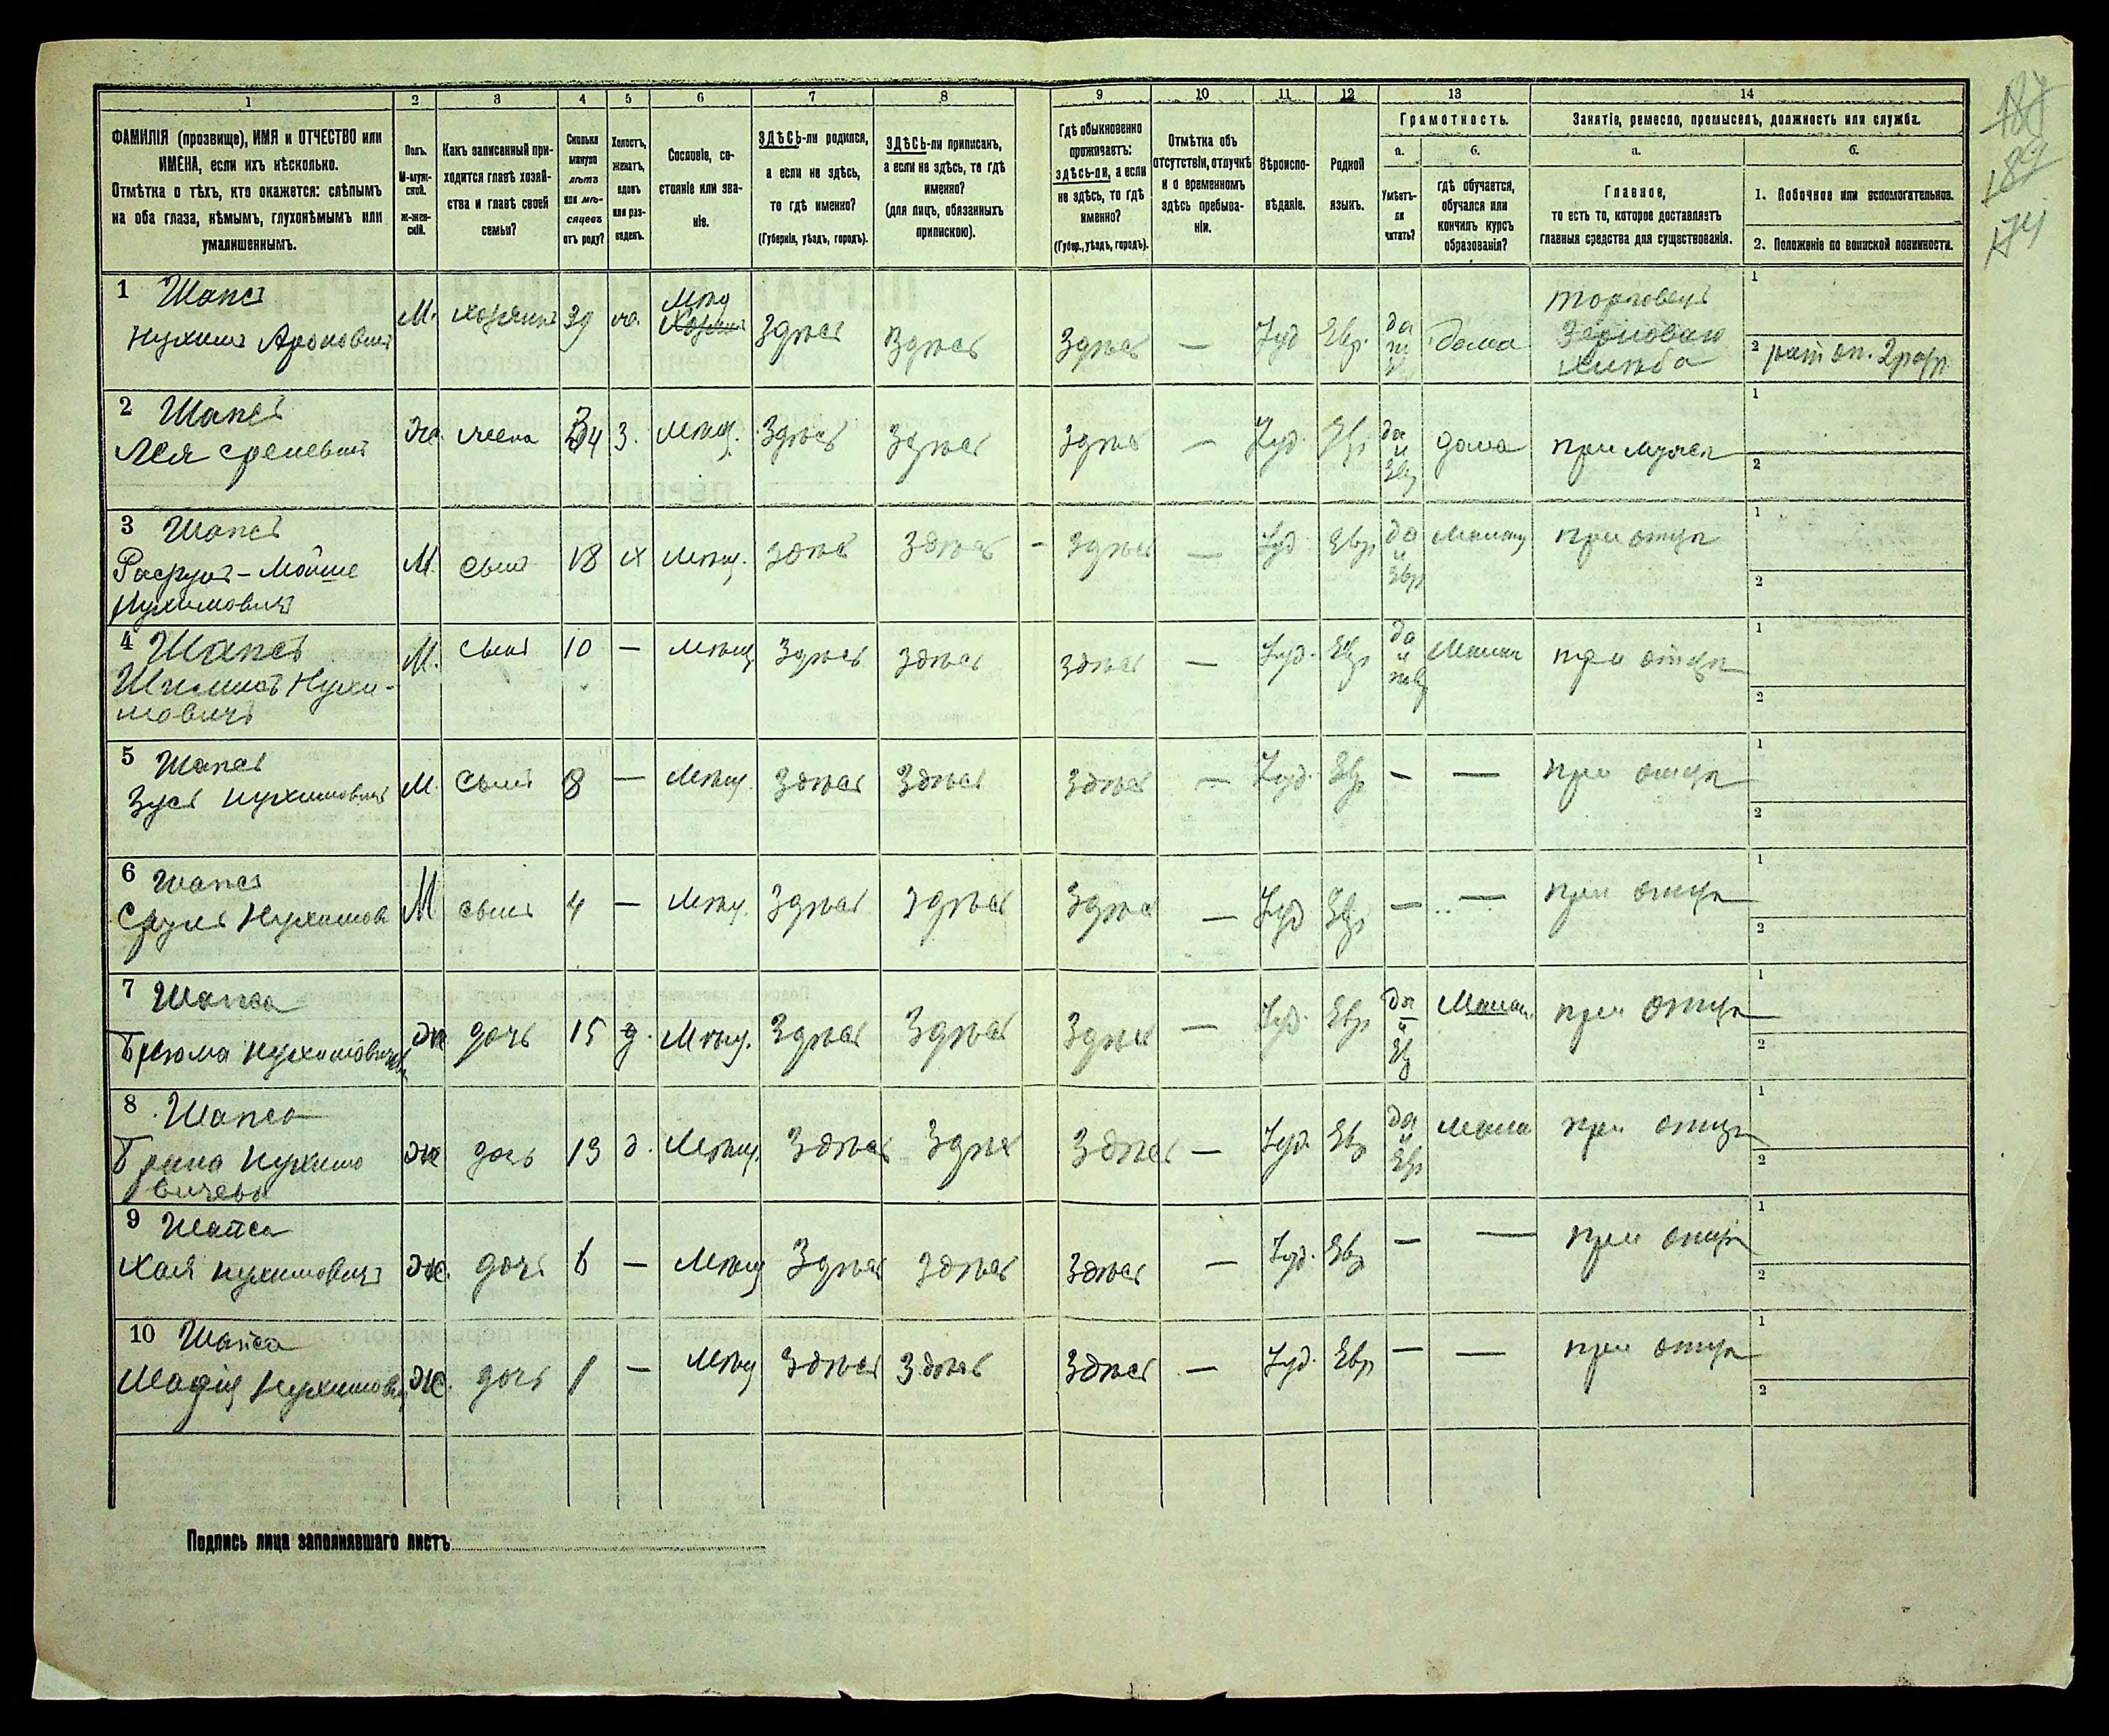 1 2 3 4 5 6 7 8 9 10 11 12 13 14
ФАМИЛІЯ (прозвище), ИМЯ и ОТЧЕСТВО или
ИМЕНА, если ихъ нѣсколько.
Отмѣтка о тѣхъ, кто окажется: слѣпымъ
на оба глаза, нѣмымъ, глухонѣмымъ или
умалишеннымъ.
Полъ.
М-муж-
ской.
Ж-жен-
скій.
Какъ записанный при-
ходится главѣ хозяй-
ства и главѣ своей
семьи?
Сколько
минуло
лѣтъ
или мѣ-
сяцевъ
отъ роду?
Холостъ,
женатъ,
вдовъ
или раз-
веденъ.
Сословіе, со-
стояніе или зва-
ніе.
ЗДѢСЬ-ли родился,
а если не здѣсь,
то гдѣ именно?
(Губернія, уѣздъ, городъ).
ЗДѢСЬ-ли приписанъ,
а если не здѣсь, то гдѣ
именно?
(для лицъ, обязанныхъ
припискою).
Гдѣ обыкновенно
проживаетъ:
здѣсь-ли, а если
не здѣсь, то гдѣ
именно?
(Губер., уѣздъ, городъ).
Отмѣтка объ
отсутствіи, отлучкѣ
и о временномъ
здѣсь пребыва-
ніи.
Вѣроиспо-
вѣданіе.
Родной
языкъ.
Грамотность.
а.
Умѣетъ-
ли
читать?
б.
гдѣ обучается,
обучался или
кончилъ курсъ
образованія?
Занятіе, ремесло, промыселъ, должность или служба.
а.
Главное,
то есть то, которое доставляетъ
главныя средства для существованія.
б.
1. Побочное или вспомогательное.
2. Положеніе по воинской повинности.
187
189
174
1 Шапсъ
Нухимъ Ароновичъ
М. хозяинъ 39 Мѣщ Здѣсь Здѣсь Здѣсь — Іуд Евр. да дома
торговецъ
Зерноваго
хлѣба
1
2 рат оп. 2 разр
2 Шапсъ
Лея
Же жена 34 З. Мѣщ. Здѣсь Здѣсь Здѣсь — Іуд. Евр да и Евр дома при мужѣ
1
2
3 Шапсъ
Мойше
Нухимовичъ
М сынъ 18 х Мѣщ. Здѣсь Здѣсь - Здѣсь — Іуд Евр да и Евр при отцѣ
1
2
4 Шапсъ
Нухи-
мовичъ
М. сынъ 10 — Мѣщ Здѣсь Здѣсь Здѣсь — Іуд. Евр да и при отцѣ
1
2
5 Шапсъ
Зусь Нухимовичъ
М. сынъ 8 — Мѣщ. Здѣсь Здѣсь Здѣсь — Іуд. Евр — — при отцѣ
1
2
6 Шапсъ
Сруль Нухимов
М сынъ 4 — Мѣщ. Здѣсь Здѣсь Здѣсь — Іуд Евр — — при отцѣ
1
2
7 Шапса
Же дочь 15 д. Мѣщ. Здѣсь Здѣсь Здѣсь — Іуд. Евр да и Евр при отцѣ
1
2
8 Шапса
Нухимо
вичева
Же дочь 13 д. Мѣщ. Здѣсь Здѣсь Здѣсь — Іуд. Евр да и Евр при отцѣ
1
2
9 Шапса
Хая Нухимовичъ
Же. дочь 6 — Мѣщ Здѣсь Здѣсь Здѣсь — Іуд. Евр — — при отцѣ
1
2
10 Шапса
Нухимов
Же. дочь 1 — Мѣщ Здѣсь Здѣсь Здѣсь — Іуд. Евр — — при отцѣ
1
2
Подпись лица заполнявшаго листъ